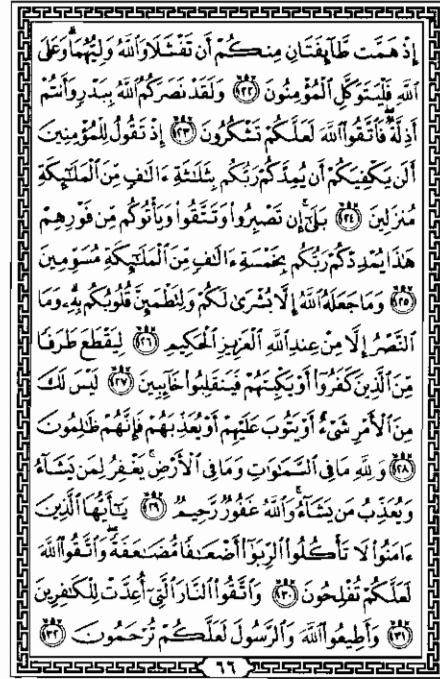 إِذْ هَمَّت طَّآئِفَتَانِ مِنكُمْ أَن تَفْشَلَا وَٱللَّهُ وَلِيُّهُمَا ۗ وَعَلَى
ٱللَّهِ فَلْيَتَوَكَّلِ ٱلْمُؤْمِنُونَ ﴿١٢٢﴾ وَلَقَدْ نَصَرَكُمُ ٱللَّهُ بِبَدْرٍ وَأَنتُمْ
أَذِلَّةٌ ۖ فَٱتَّقُوا۟ ٱللَّهَ لَعَلَّكُمْ تَشْكُرُونَ ﴿١٢٣﴾ إِذْ تَقُولُ لِلْمُؤْمِنِينَ
أَلَن يَكْفِيَكُمْ أَن يُمِدَّكُمْ رَبُّكُم بِثَلَـٰثَةِ ءَالَـٰفٍ مِّنَ ٱلْمَلَـٰٓئِكَةِ
مُنزَلِينَ ﴿١٢٤﴾ بَلَىٰٓ ۚ إِن تَصْبِرُوا۟ وَتَتَّقُوا۟ وَيَأْتُوكُم مِّن فَوْرِهِمْ
هَـٰذَا يُمْدِدْكُمْ رَبُّكُم بِخَمْسَةِ ءَالَـٰفٍ مِّنَ ٱلْمَلَـٰٓئِكَةِ مُسَوِّمِينَ
﴿١٢٥﴾ وَمَا جَعَلَهُ ٱللَّهُ إِلَّا بُشْرَىٰ لَكُمْ وَلِتَطْمَئِنَّ قُلُوبُكُم بِهِۦ ۗ وَمَا
ٱلنَّصْرُ إِلَّا مِنْ عِندِ ٱللَّهِ ٱلْعَزِيزِ ٱلْحَكِيمِ ﴿١٢٦﴾ لِيَقْطَعَ طَرَفًا
مِّنَ ٱلَّذِينَ كَفَرُوٓا۟ أَوْ يَكْبِتَهُمْ فَيَنقَلِبُوا۟ خَآئِبِينَ ﴿١٢٧﴾ لَيْسَ لَكَ
مِنَ ٱلْأَمْرِ شَىْءٌ أَوْ يَتُوبَ عَلَيْهِمْ أَوْ يُعَذِّبَهُمْ فَإِنَّهُمْ ظَـٰلِمُونَ
﴿١٢٨﴾ وَلِلَّهِ مَا فِى ٱلسَّمَـٰوَٰتِ وَمَا فِى ٱلْأَرْضِ ۚ يَغْفِرُ لِمَن يَشَآءُ
وَيُعَذِّبُ مَن يَشَآءُ ۚ وَٱللَّهُ غَفُورٌ رَّحِيمٌ ﴿١٢٩﴾ يَـٰٓأَيُّهَا ٱلَّذِينَ
ءَامَنُوا۟ لَا تَأْكُلُوا۟ ٱلرِّبَوٰٓا۟ أَضْعَـٰفًا مُّضَـٰعَفَةً ۖ وَٱتَّقُوا۟ ٱللَّهَ
لَعَلَّكُمْ تُفْلِحُونَ ﴿١٣٠﴾ وَٱتَّقُوا۟ ٱلنَّارَ ٱلَّتِىٓ أُعِدَّتْ لِلْكَـٰفِرِينَ
﴿١٣١﴾ وَأَطِيعُوا۟ ٱللَّهَ وَٱلرَّسُولَ لَعَلَّكُمْ تُرْحَمُونَ ﴿١٣٢﴾
٦٦